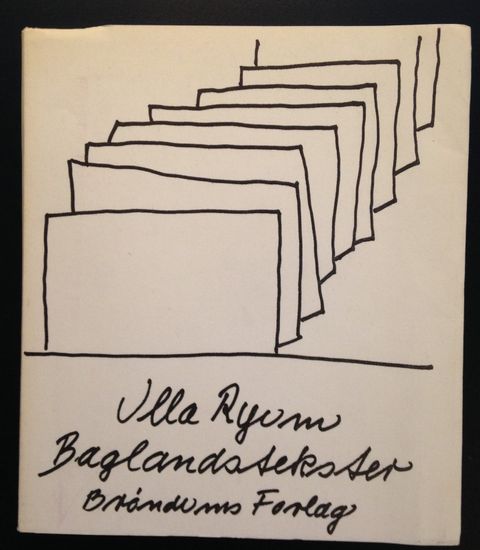 Ulla Ryum
Baglandstekster
Brándums Forlag